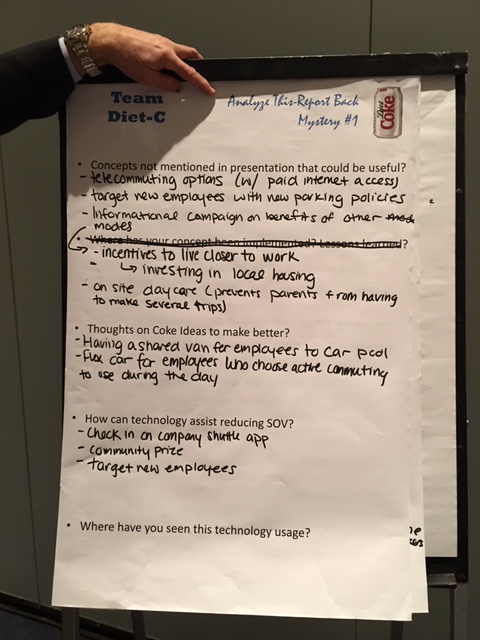 Team
Diet-C
Analyze This-Report Back
Mystery #1
Diet
Coke
• Concepts not mentioned in presentation that could be useful?
- telecommuting options (w/ paid internet access)
- target new employees with new parking policies
- Informational campaign on benefits of other
modes
• Where has your concept been implemented? Lessons learned?
- incentives to live closer to work
- ↳ investing in local housing
- on site daycare (prevents parents from having
to make several trips)
• Thoughts on Coke Ideas to make better?
- Having a shared van for employees to car pool
- Flex car for employees who choose active commuting
to use during the day
• How can technology assist reducing SOV?
- Check in on company shuttle app
- community prize
- target new employees
• Where have you seen this technology usage?